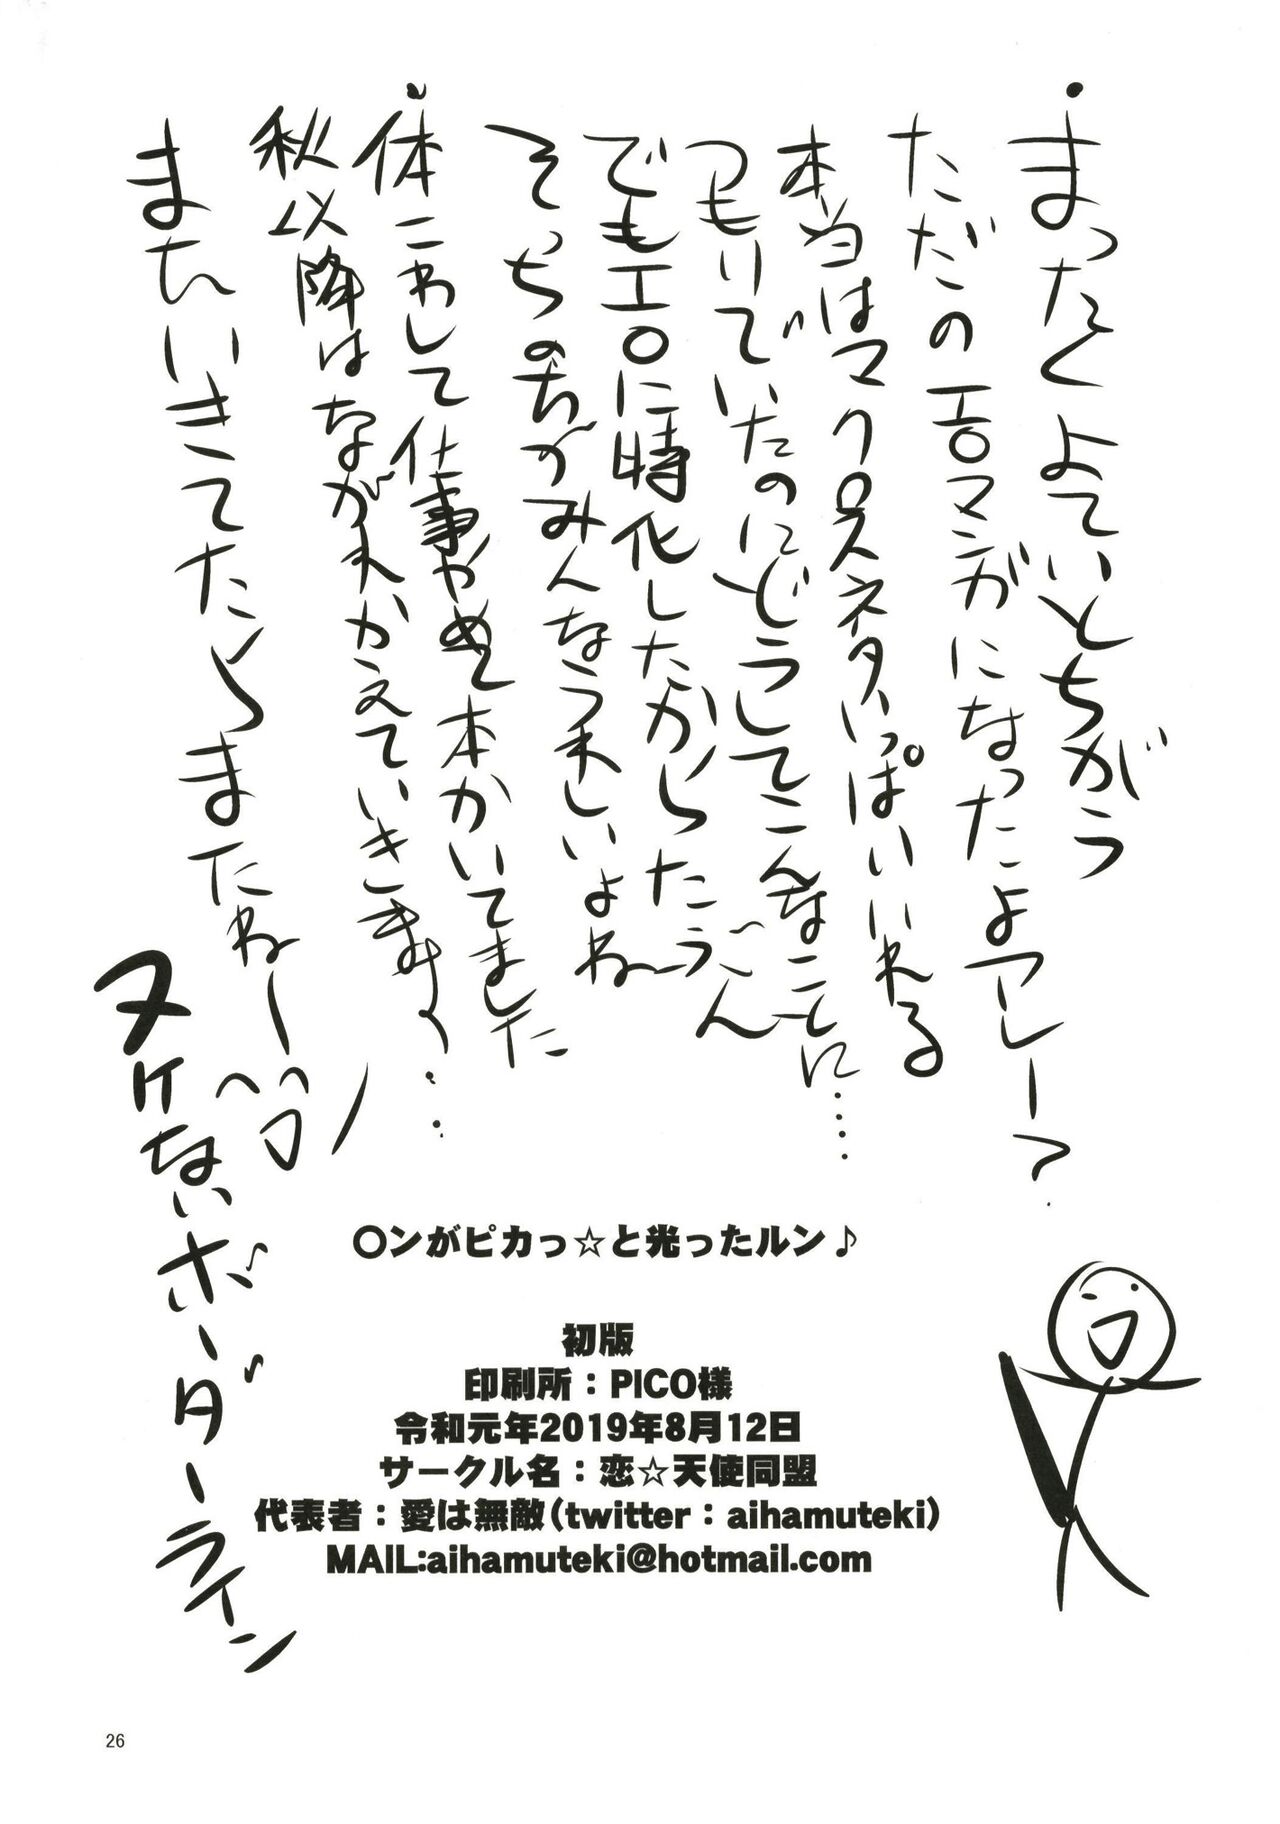 ・まったくよていとちがう
ただのエロマンガになったよアレー?
本当はマクロスネタいっぱいいれる
つもりでいたのにどうしてこんなことに……
でもエロに特化したからたぶん
そっちのちがみんなうれしいよねーうん
・体こわして仕事やめて本かいてました
秋以降はながれかえていきます…
まだいきてたらまたねー
ヌケないボーダーライン
〇ンがピカっ☆と光ったルン♪
初版
印刷所：PICO様
令和元年2019年8月12日
サークル名：恋☆天使同盟
代表者：愛は無敵(twitter：aihamuteki)
MAIL:aihamuteki@hotmail.com
26